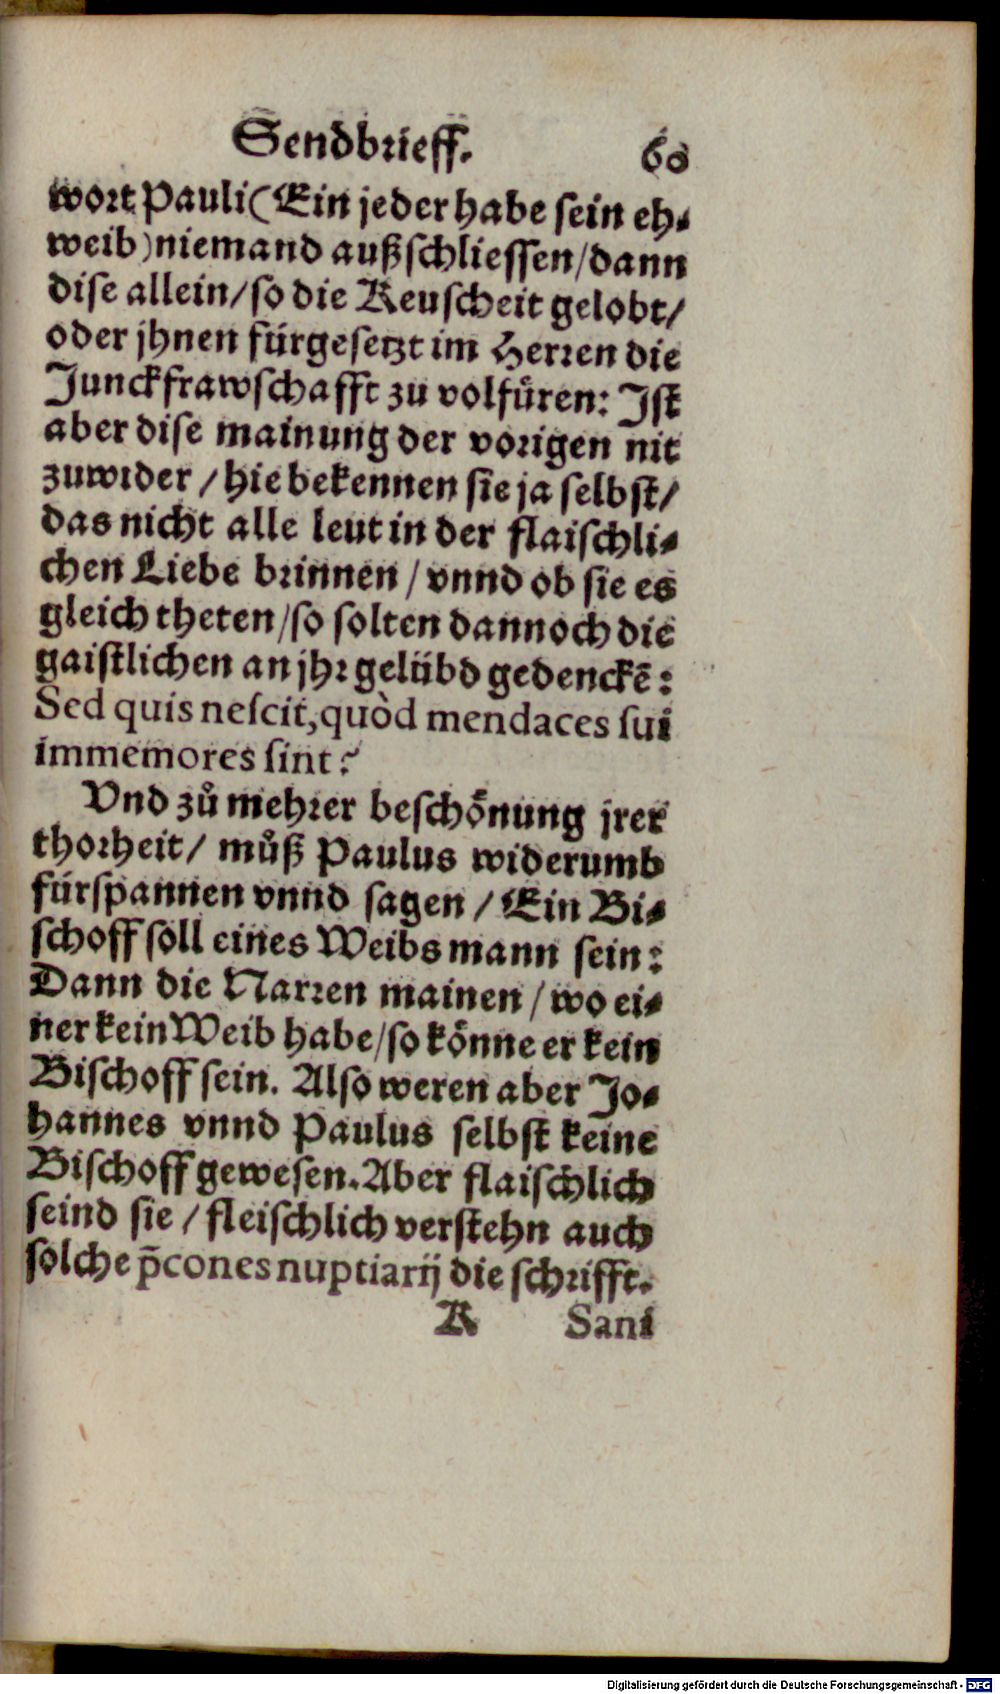 Sendbrieff. 60
wort Pauli (Ein jeder habe sein eh-
weib) niemand außschliessen / dann
dise allein / so die Keuscheit gelobt /
oder jhnen fürgesetzt im Herren die
Junckfrawschafft zu volfüren: Ist
aber dise mainung der vorigen nit
zuwider / hie bekennen sie ja selbst /
das nicht alle leut in der flaischli-
chen Liebe brinnen / vnnd ob sie es
gleich theten / so solten dannoch die
gaistlichen an jhr gelübd gedenckē:
Sed quis nescit, quòd mendaces sui
immemores sint?
Vnd zů mehrer beschönung jrer
thorheit / můß Paulus widerumb
fürspannen vnnd sagen / Ein Bi-
schoff soll eines Weibs mann sein:
Dann die Narren mainen / wo ei-
ner kein Weib habe / so könne er kein
Bischoff sein. Also weren aber Jo-
hannes vnnd Paulus selbst keine
Bischoff gewesen. Aber flaischlich
seind sie / fleischlich verstehn auch
solche p̃cones nuptiarij die schrifft.
K Sani
Digitalisierung gefördert durch die Deutsche Forschungsgemeinschaft - DFG